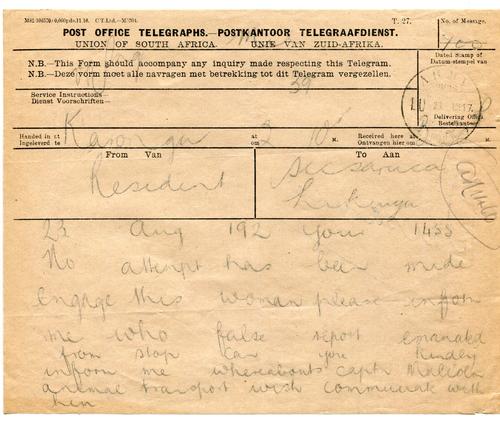 T. 27.
No. of Message.
POST OFFICE TELEGRAPHS.—POSTKANTOOR TELEGRAAFDIENST.
UNION OF SOUTH AFRICA. UNIE VAN ZUID-AFRIKA.
700
Dated Stamp of
Datum-stempel van
N.B.—This Form should accompany any inquiry made respecting this Telegram.
N.B.—Deze vorm moet alle navragen met betrekking tot dit Telegram vergezellen.
39
Service Instructions—
Dienst Voorschriften—
Delivering Office
Bestelkantoor
Handed in at
Ingeleverd te
Karonga
at
om
M.
Received here at
Ontvangen hier om
M.
From Van
To Aan
Resident
23 Aug 192 your 1455
No attempt has been made
engage this woman please inform
me who false report emanated
from stop can you kindly
inform me whereabouts captn Malcolm
animal transport wish communicate with
him